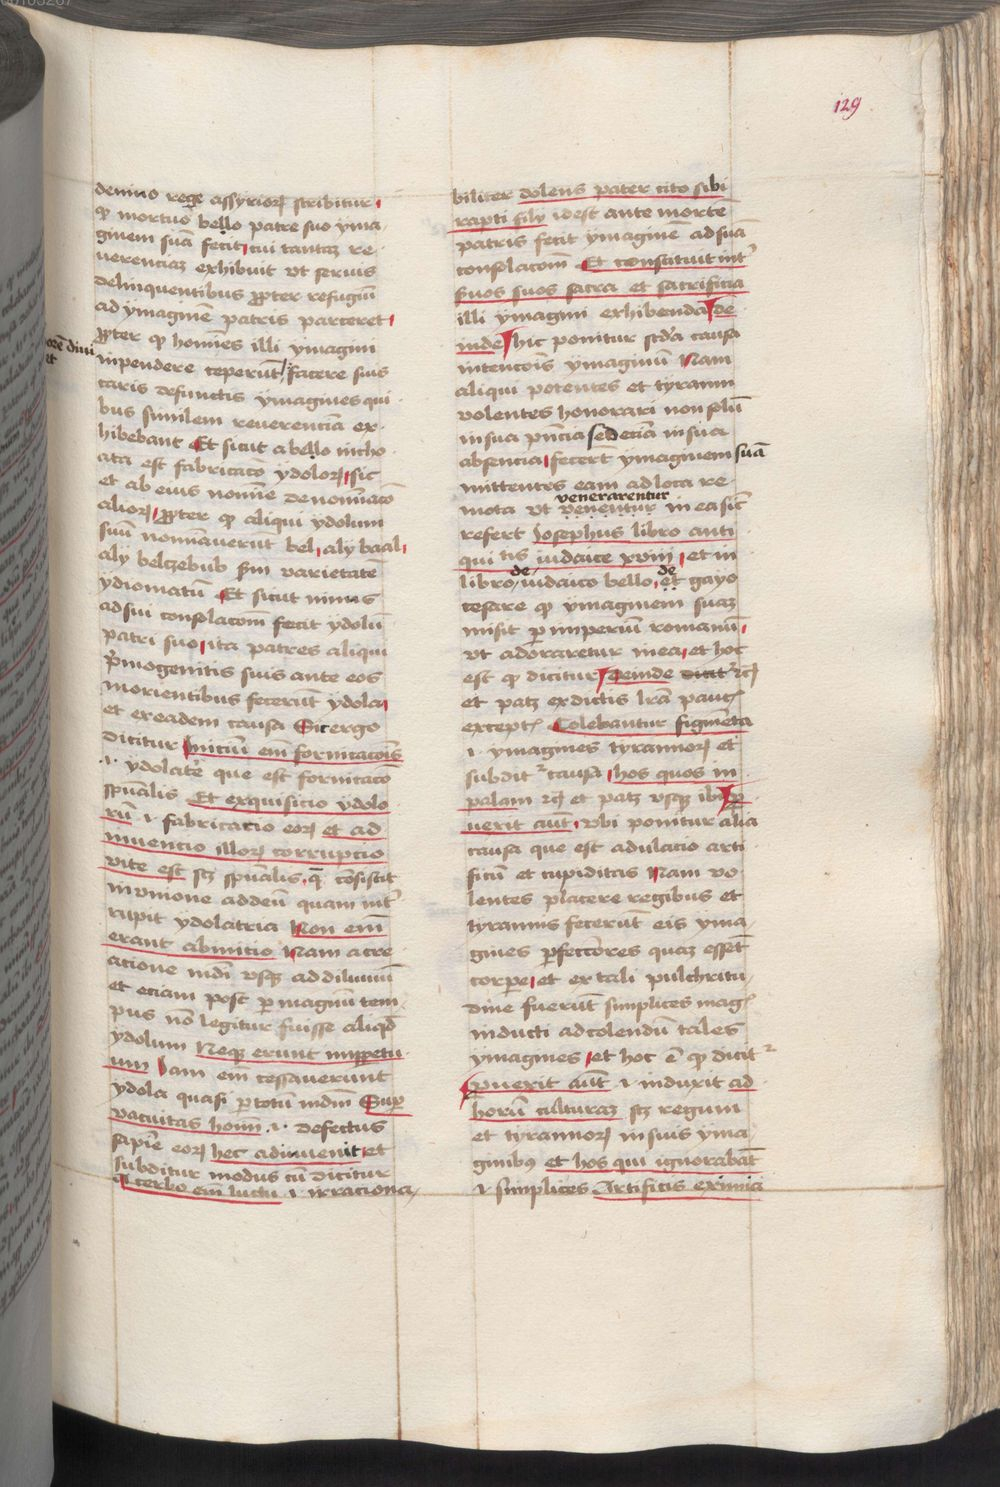 129
de nino rege assyrioꝝ scribitur
ꝙ mortuo bello patre suo yma
ginem suā fecit cui tantaꝫ re
uerenciaꝫ exhibuit vt seruis
delinquentibus ꝓpter refugiū
ad ymaginē patris parceret
ꝓpter ꝙ homīes illi ymagini
diui
et
inpendere ceperūt facere suis
caris defunctis ymagines qui
bus similem reuerenciā ex
hibebant Et sicut a bello incho
ata est fabricatō ydoloꝝ sic
et ab eius nomīe denomīatō
alioꝝ ꝓpter ꝙ aliqui ydolum
suū nomīauerūt bel aly baal
aly belczebub scdm varietatē
ydiomatū Et sicut ninus
ad sui consolacōm fecit ydolū
patri suo ita patres aliqui
pͥmogenitis suis ante eos
morientibus fecerūt ydola
et ex eadem causa Sic ergo
dicitur Iniciū em̄ fornicacōis
.i. ydolatͥe que est fornicacō
spūalis Et exquisicio ydolo
rū .i. fabricacio eoꝝ et ad
inuencio illoꝝ corrupcio
vite est scꝫ spūalis q̄ cōsistit
in vnione ad deū quam intͥ
rupit ydolatria Non em̄
erant ab inicio Nam a cre
acione mūdi vsqꝫ ad diluuiū
et eciam post ꝑ magnū tem
pus nō legitur fuisse aliqd̄
ydolum Neqꝫ erunt inppetu
um Iam em̄ cessauerunt
ydola quasi ꝑ totū mūdm̄ Suꝑ
vacuitas homīn .i. defectus
sapīe eoꝝ hec adinuenit et
subditur modus cū dicitur
Acerbo em̄ luctu .i. irraciona
biliter dolens pater cito sibi
rapti fily idest ante mortē
patris fecit ymaginē ad suā
consolacōm Et constituit intͥ
suos suos sacra et sacrificia
illi ymagini exhibenda de
inde hic ponitur scd̄a causa
intencōis ymaginū Nam
aliqui potentes et tyranni
volentes honorari non solū
in sua pūcia sed eciā in sua
absencia fecerūt ymaginem suā
mittentes eam ad loca re
venerarentur
mota vt venentur in ea sic̄
refert Josephus libro anti
qui tis iudaice xviij et in
de de
libro iudaico bello et gayo
cesare ꝙ ymaginem suaꝫ
misit ꝑ imperiū romanū
vt adoraretur in ea et hoc
est ꝙ dicitur Deinde dicit ꝛcꝫ
et patꝫ ex dictis lrā paucꝭ
exceptꝭ Colebantur figmēta
.i. ymagines tyrannoꝝ et
subditͬ causa hos quos in
palam ꝛcꝫ et patꝫ vsqꝫ ibi ꝓ
uexit aūt vbi ponitur alia
causa que est adulacio arti
ficū et cupiditas Nam vo
lentes placere regibus et
tyrannis fecerūt eis yma
gines ꝑfecciores quaꝫ essēt
corpe et ex tali pulchritu
dine fuerūt simplices magꝭ
inducti ad colendū tales
ymagines et hoc ē ꝙ dicitͬ
ꝓuexit aūt .i. induxit ad
horū culturaꝫ scꝫ regum
et tyrannoꝝ in suis yma
ginibꝰ et hos qui ignorabāt
.i. simplices Artificis eximia